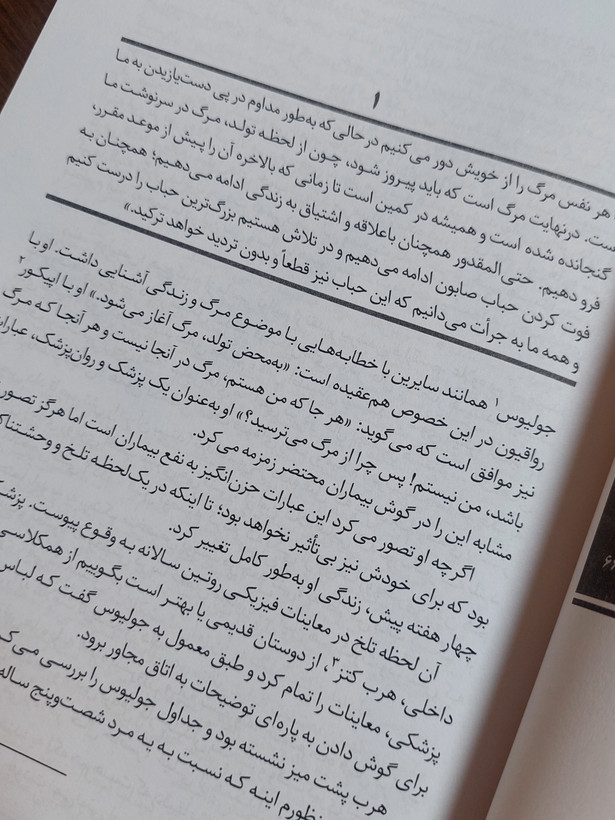 ۱
هر نفس مرگ را از خویش دور می‌کنیم در حالی که به‌طور مداوم در پی دست‌یازیدن به ما
ست. درنهایت مرگ است که باید پیروز شود، چون از لحظه تولد، مرگ در سرنوشت ما
گنجانده شده است و همیشه در کمین است تا زمانی که بالاخره آن را پیش از موعد مقرر،
فرو دهیم. حتی‌المقدور همچنان باعلاقه و اشتیاق به زندگی ادامه می‌دهیم؛ همچنان به
فوت کردن حباب صابون ادامه می‌دهیم و در تلاش هستیم بزرگ‌ترین حباب را درست کنیم
و همه ما به جرأت می‌دانیم که این حباب نیز قطعاً و بدون تردید خواهد ترکید.»
جولیوس۱ همانند سایرین با خطابه‌هایی با موضوع مرگ و زندگی آشنایی داشت. او با
رواقیون در این خصوص هم‌عقیده است: «به‌محض تولد، مرگ آغاز می‌شود.» او با اپیکور۲
نیز موافق است که می‌گوید: «هر جا که من هستم، مرگ در آنجا نیست و هر آنجا که مرگ
باشد، من نیستم! پس چرا از مرگ می‌ترسید؟» او به‌عنوان یک پزشک و روان‌پزشک،
مشابه این را در گوش بیماران محتضر زمزمه می‌کرد.
اگرچه او تصور می‌کرد این عبارات حزن‌انگیز به نفع بیماران است اما هرگز تصور
بود که برای خودش نیز بی‌تأثیر نخواهد بود؛ تا اینکه در یک لحظه تلخ و
چهار هفته پیش، زندگی او به‌طور کامل تغییر کرد.
آن لحظه تلخ در معاینات فیزیکی روتین سالانه به وقوع پیوست.
داخلی، هرب کتز۳، از دوستان قدیمی یا بهتر است بگوییم از همکلاسی
پزشکی، معاینات را تمام کرد و طبق معمول به جولیوس گفت که لباس
برای گوش دادن به پاره‌ای توضیحات به اتاق مجاور برود.
هرب پشت میز نشسته بود و جداول جولیوس را بررسی می‌ک
اینه که نسبت به یه مرد شصت‌وپنج ساله